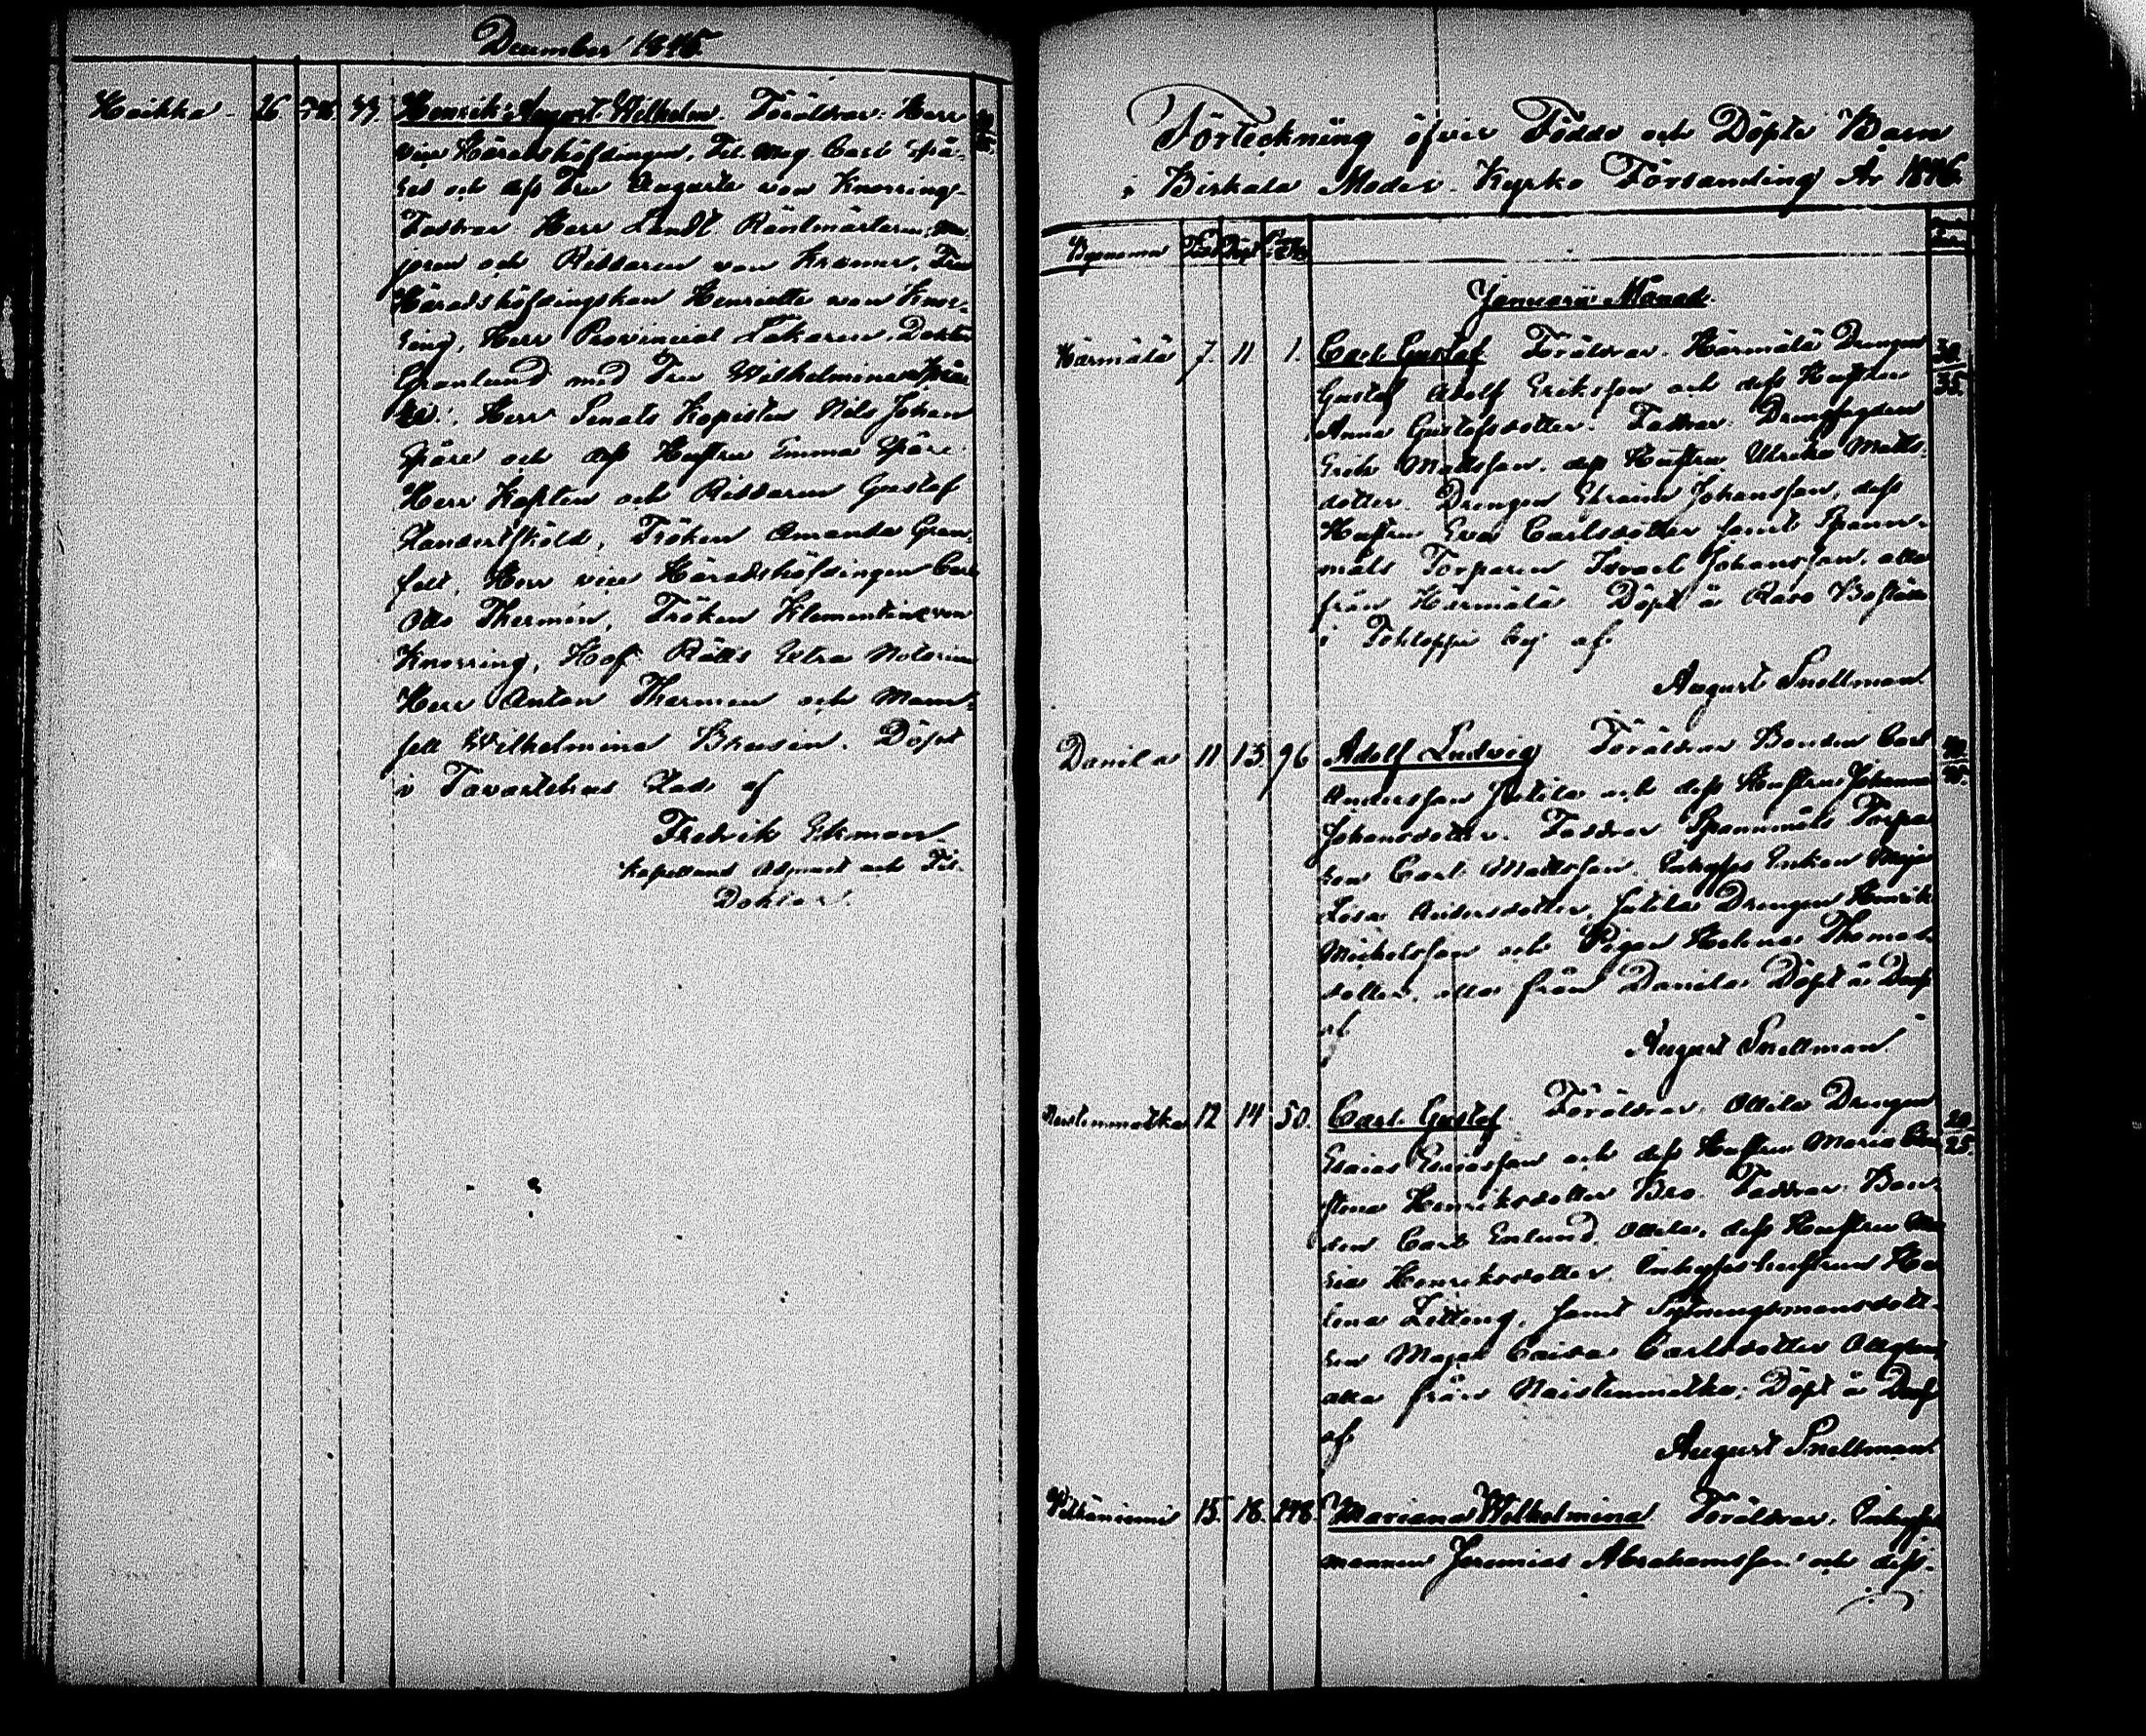 December 1845.
Haikka 26. 33. Henrik August Wilhelm. Föräldrar: Herr
vice Häradshöfdingen, Fil. Mag. Carl
och dess Fru Augusta von Knorring
Faddrar Herr Landt Räntmästaren, Ma-
joren och Riddaren von Kræmer, Fru
Häradshöfdingskan Henriette von Knor-
ring, Herr Provincial Läkaren, Doktor
Granlund med Fru Wilhelmina
Herr Senats Kopisten Nils Johan
och dess Hustru Emma
Herr Kapten och Riddaren Gustaf
Fröken Amanda Gran-
felt, Herr vice Häradshöfdingen Carl
Otto Thermén, Fröken Klementine von
Knorring, Hof Rätts Extra Notarien
Herr Anton Thermen och Mam-
sell Wilhelmina Döpt
i Tavastehus Stad af
Fredrik Ekman
Kapellans Adjunct och Fil.
Doktor.
Förteckning öfver Födde och Döpte Barn
i Birkala Moder-Kyrko Församling År 1846.
Bynamn Född Döpt
Januarii Månad.
Härmälä 7. 11 1. Carl Gustaf Föräldrar. Härmälä Drengen 30/35.
Gustaf Adolf Eriksson och dess Hustru
Anna Gustafsdotter. Faddrar: Drengfogden
Erik Mattsson, dess Hustru Ulrika Matts-
dotter. Drengen Efraim Johansson, dess
Hustru Eva Carlsdotter samt Spann-
måls Torparen Israel Johansson, alla
från Härmälä Döpt å Raso Boställe
i Tohloppi by af
August Snellman
Danila 11 13. 96 Adolf Ludvig Föräldrar Bonden Carl
Andersson och dess Hustru Johanna
Johansdotter. Faddrar Spannmåls Torpa-
ren Carl Mattsson. Inhyses Enkan Maja
Lisa Andersdotter, Drengen Henrik
Michelsson och Pigan Helena Thomas-
dotter, alla från Danila Döpt å Dess
af
August Snellman
Naistenmatka 12 14 50. Carl Gustaf Föräldrar, Ollila Drengen
Esaias Esaiasson och dess Hustru Maria
Henriksdotter Bro. Faddrar: Bon-
den Carl Enlund, Ollila, dess Hustru Ma-
ria Henriksdotter Inhyseshustrun He-
lena Letting, samt Sqvadronsmansdott-
ren Maja Caisa Carlsdotter
alla från Naistenmatka, Döpt å Dess
af
August Snellman
Pitkäniemi 15. 18. 148. Mariana Wilhelmina Föräldrar, Inhyses
mannen Jeremias Abrahamsson och dess